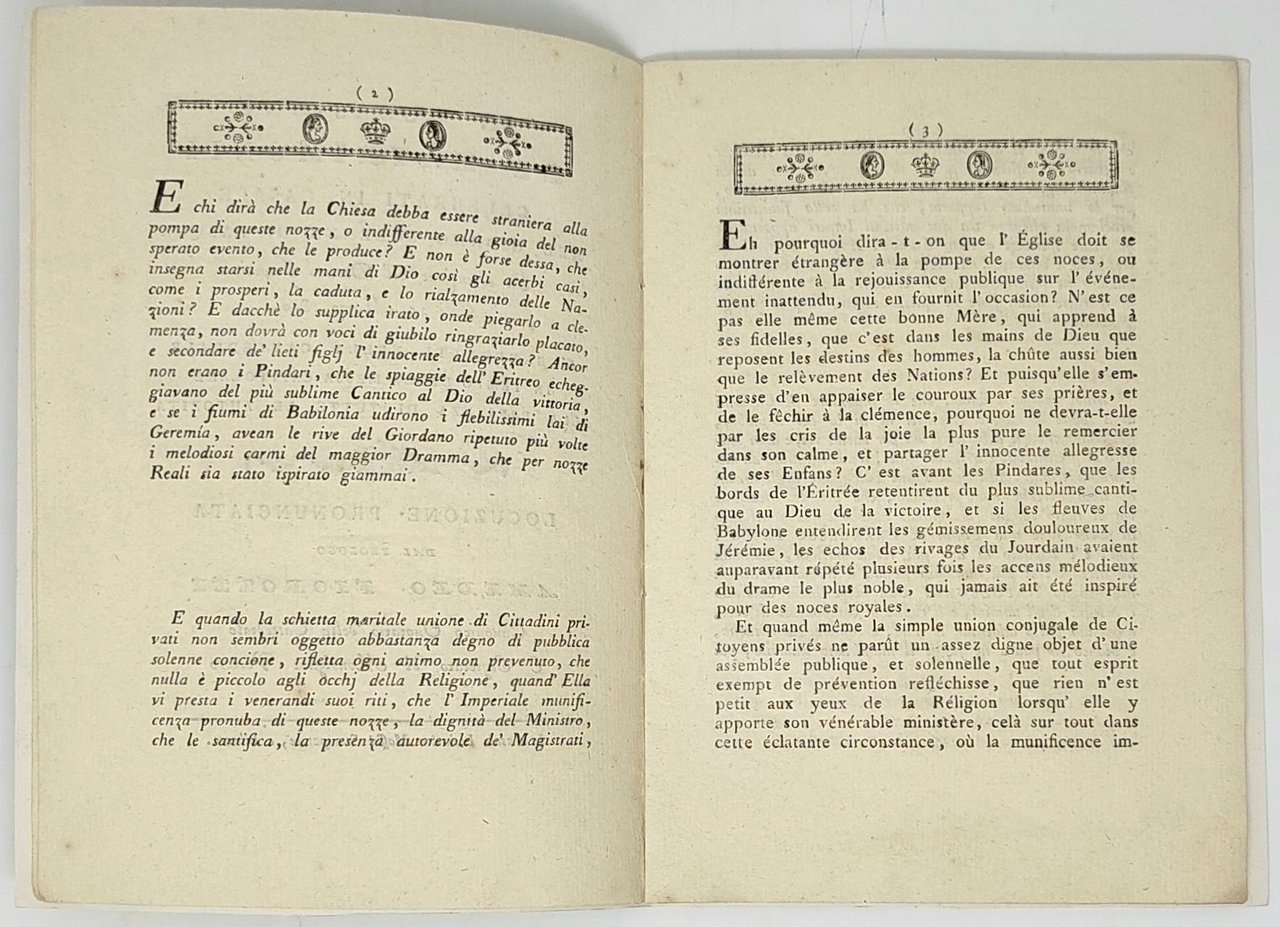 ( 2 )
E chi dirà che la Chiesa debba essere straniera alla
pompa di queste nozze, o indifferente alla gioia del non
sperato evento, che le produce? E non è forse dessa, che
insegna starsi nelle mani di Dio così gli acerbi casi,
come i prosperi, la caduta, e lo rialzamento delle Na-
zioni? E dacchè lo supplica irato, onde piegarlo a cle-
menza, non dovrà con voci di giubilo ringraziarlo placato,
e secondare de' lieti figlj l' innocente allegrezza? Ancor
non erano i Pindari, che le spiaggie dell' Eritreo echeg-
giavano del più sublime Cantico al Dio della vittoria,
e se i fiumi di Babilonia udirono i flebilissimi lai di
Geremía, avean le rive del Giordano ripetuto più volte
i melodiosi carmi del maggior Dramma, che per nozze
Reali sia stato ispirato giammai.
E quando la schietta maritale unione di Cittadini pri-
vati non sembri oggetto abbastanza degno di pubblica
solenne concione, rifletta ogni animo non prevenuto, che
nulla è piccolo agli occhj della Religione, quand' Ella
vi presta i venerandi suoi riti, che l' Imperiale munifi-
cenza pronuba di queste nozze, la dignità del Ministro,
che le santifica, la presenza autorevole de' Magistrati,
( 3 )
Eh pourquoi dira-t-on que l' Église doit se
montrer étrangère à la pompe de ces noces, ou
indifférente à la rejouissance publique sur l' événe-
ment inattendu, qui en fournit l'occasion? N' est ce
pas elle même cette bonne Mère, qui apprend à
ses fidelles, que c'est dans les mains de Dieu que
reposent les destins des hommes, la chûte aussi bien
que le relèvement des Nations? Et puisqu'elle s'em-
presse d'en appaiser le couroux par ses prières, et
de le fêchir à la clémence, pourquoi ne devra-t-elle
par les cris de la joie la plus pure le remercier
dans son calme, et partager l' innocente allegresse
de ses Enfans? C' est avant les Pindares, que les
bords de l'Éritrée retentirent du plus sublime canti-
que au Dieu de la victoire, et si les fleuves de
Babylone entendirent les gémissemens douloureux de
Jérémie, les echos des rivages du Jourdain avaient
auparavant répété plusieurs fois les accens mélodieux
du drame le plus noble, qui jamais ait été inspiré
pour des noces royales.
Et quand même la simple union conjugale de Ci-
toyens privés ne parût un assez digne objet d' une
assemblée publique, et solennelle, que tout esprit
exempt de prévention refléchisse, que rien n' est
petit aux yeux de la Réligion lorsqu' elle y
apporte son vénérable ministère, celà sur tout dans
cette éclatante circonstance, où la munificence im-